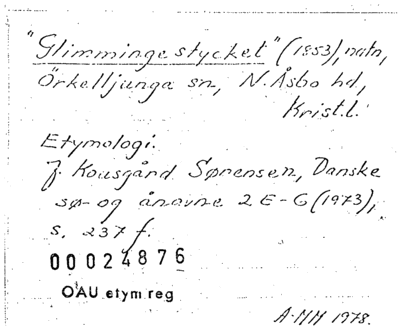 "Glimmingestycket" (1853), natn,
Örkelljunga sn, N. Åsbo hd,
Krist.l.
Etymologi:
J. Kousgård Sørensen, Danske
sø- og ånavne 2 E-G (1973),
s. 237 f.
00024876
OAU etym reg
A-MH 1978.